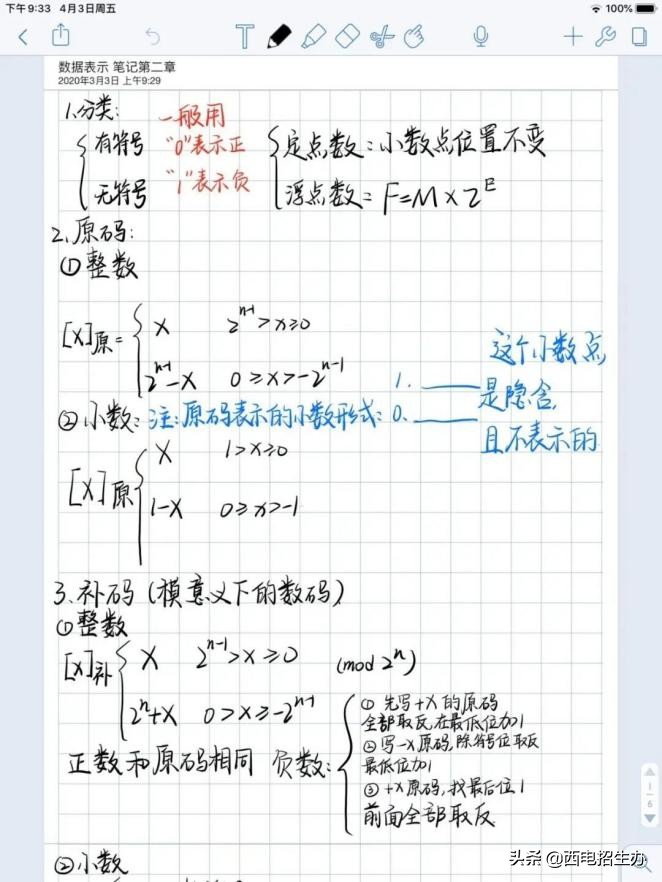 下午9:33 4月3日周五
100%
T
数据表示 笔记第二章
2020年3月3日 上午9:29
1.分类:
有符号
无符号
一般用
"0"表示正
"1"表示负
定点数:小数点位置不变
浮点数: F=M×2^E
2.原码:
①整数
[X]原=
X 2^(n-1)>x≥0
2^(n-1)-X 0≥x>-2^(n-1)
②小数:注:原码表示的小数形式:
1.
0.
这个小数点
是隐含
且不表示的
[X]原
X 1>x≥0
1-X 0≥x>-1
3.补码(模意义下的数码)
①整数
[X]补
X 2^(n-1)>x≥0 (mod 2^n)
2^n+X 0>x≥-2^(n-1)
正数和原码相同 负数:
①先写+X的原码
全部取反,在最低位加1
②写-X原码,除符号位取反
最低位加1
③+X原码,找最后位1
前面全部取反
1
6
②小数
头条 @西电招生办